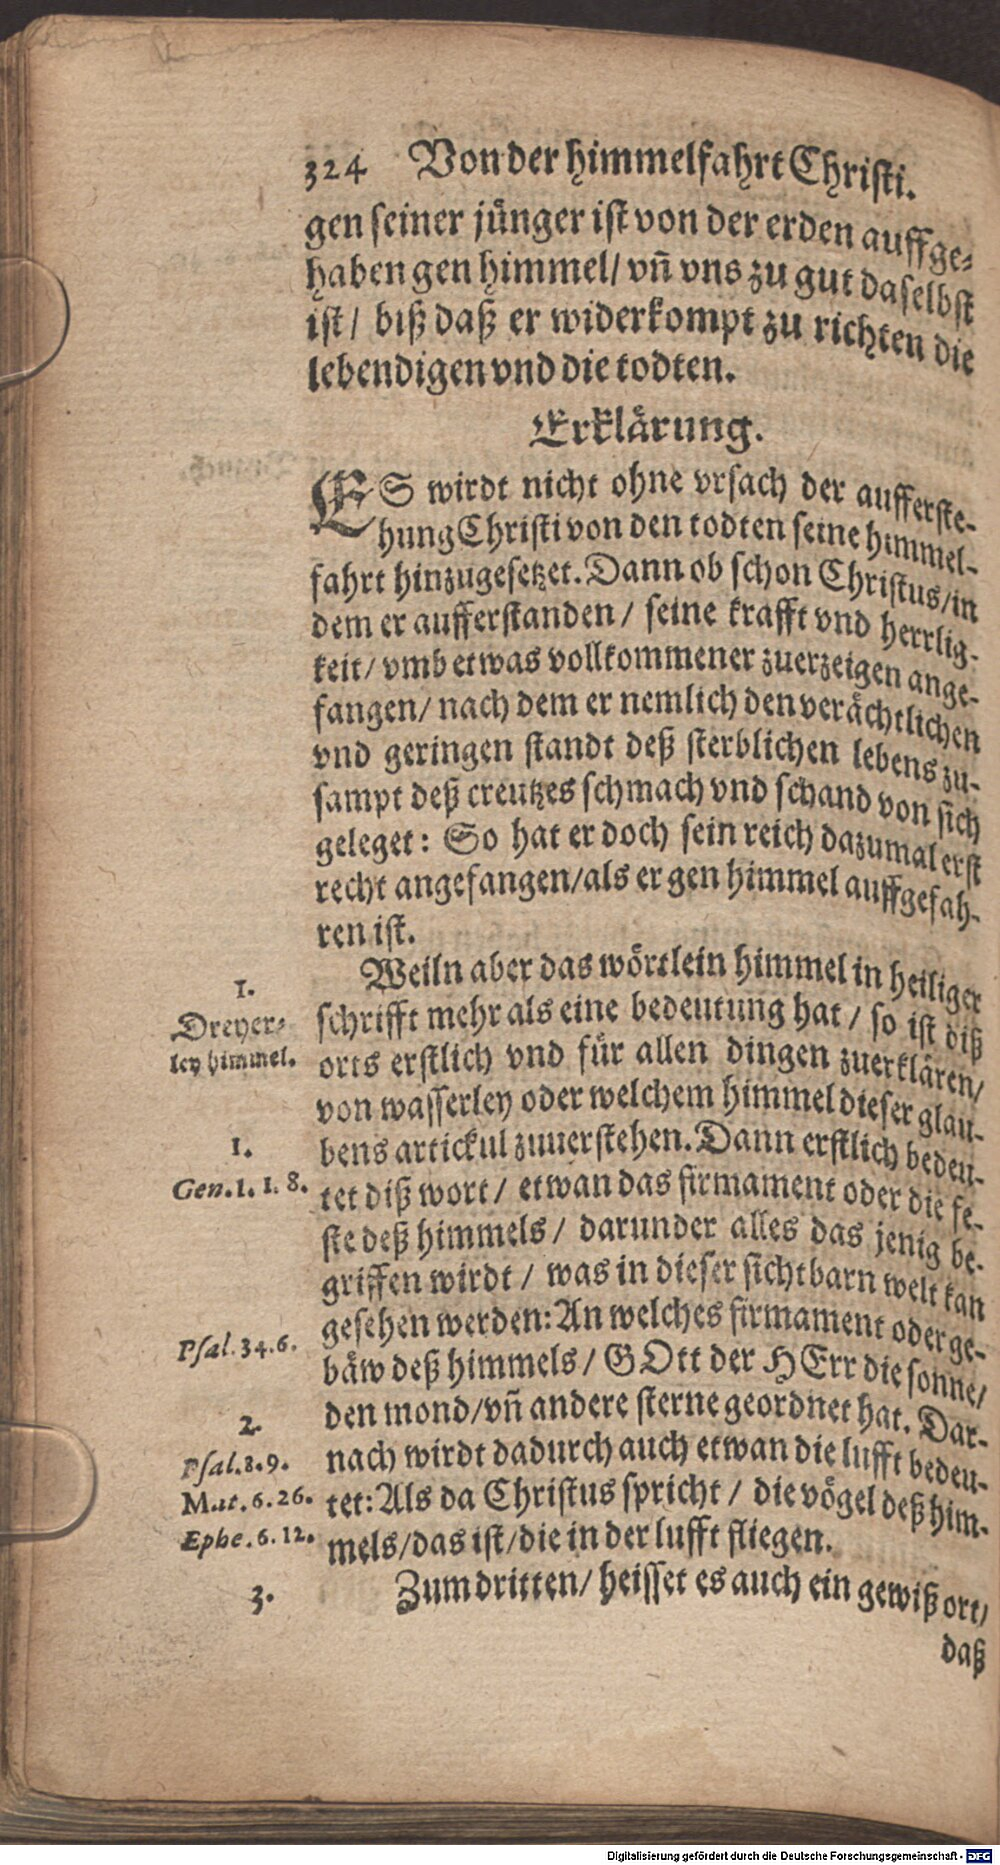 324 Von der himmelfahrt Christi.
gen seiner jünger ist von der erden auffge-
haben gen himmel/ vñ vns zu gut daselbst
ist/ biß daß er widerkompt zu richten die
lebendigen vnd die todten.
Erklärung.
ES wirdt nicht ohne vrsach der aufferste-
hung Christi von den todten seine himmel-
fahrt hinzugesetzet. Dann ob schon Christus/ in
dem er aufferstanden/ seine krafft vnd herrlig-
keit/ vmb etwas vollkommener zuerzeigen ange-
fangen/ nach dem er nemlich den verächtlichen
vnd geringen standt deß sterblichen lebens zu-
sampt deß creutzes schmach vnd schand von sich
geleget: So hat er doch sein reich dazumal erst
recht angefangen/ als er gen himmel auffgefah-
ren ist.
Weiln aber das wörtlein himmel in heiliger
1.
Dreyer-
ley himmel.
schrifft mehr als eine bedeutung hat/ so ist diß
orts erstlich vnd für allen dingen zuerklären/
von wasserley oder welchem himmel dieser glau-
bens artickul zuuerstehen. Dann erstlich bedeu-
1.
Gen. 1. 1. 8.
tet diß wort/ etwan das firmament oder die fe-
ste deß himmels/ darunder alles das jenig be-
griffen wirdt/ was in dieser sichtbarn welt kan
gesehen werden: An welches firmament oder ge-
Psal. 34. 6.
bäw deß himmels/ GOtt der HErr die sonne/
den mond/ vñ andere sterne geordnet hat. Dar-
2.
Psal. 8. 9.
Mat. 6. 26.
Ephe. 6. 12.
nach wirdt dadurch auch etwan die lufft bedeu-
tet: Als da Christus spricht/ die vögel deß him-
mels/ das ist/ die in der lufft fliegen.
3.
Zum dritten/ heisset es auch ein gewiß ort/
daß
Digitalisierung gefördert durch die Deutsche Forschungsgemeinschaft - DFG